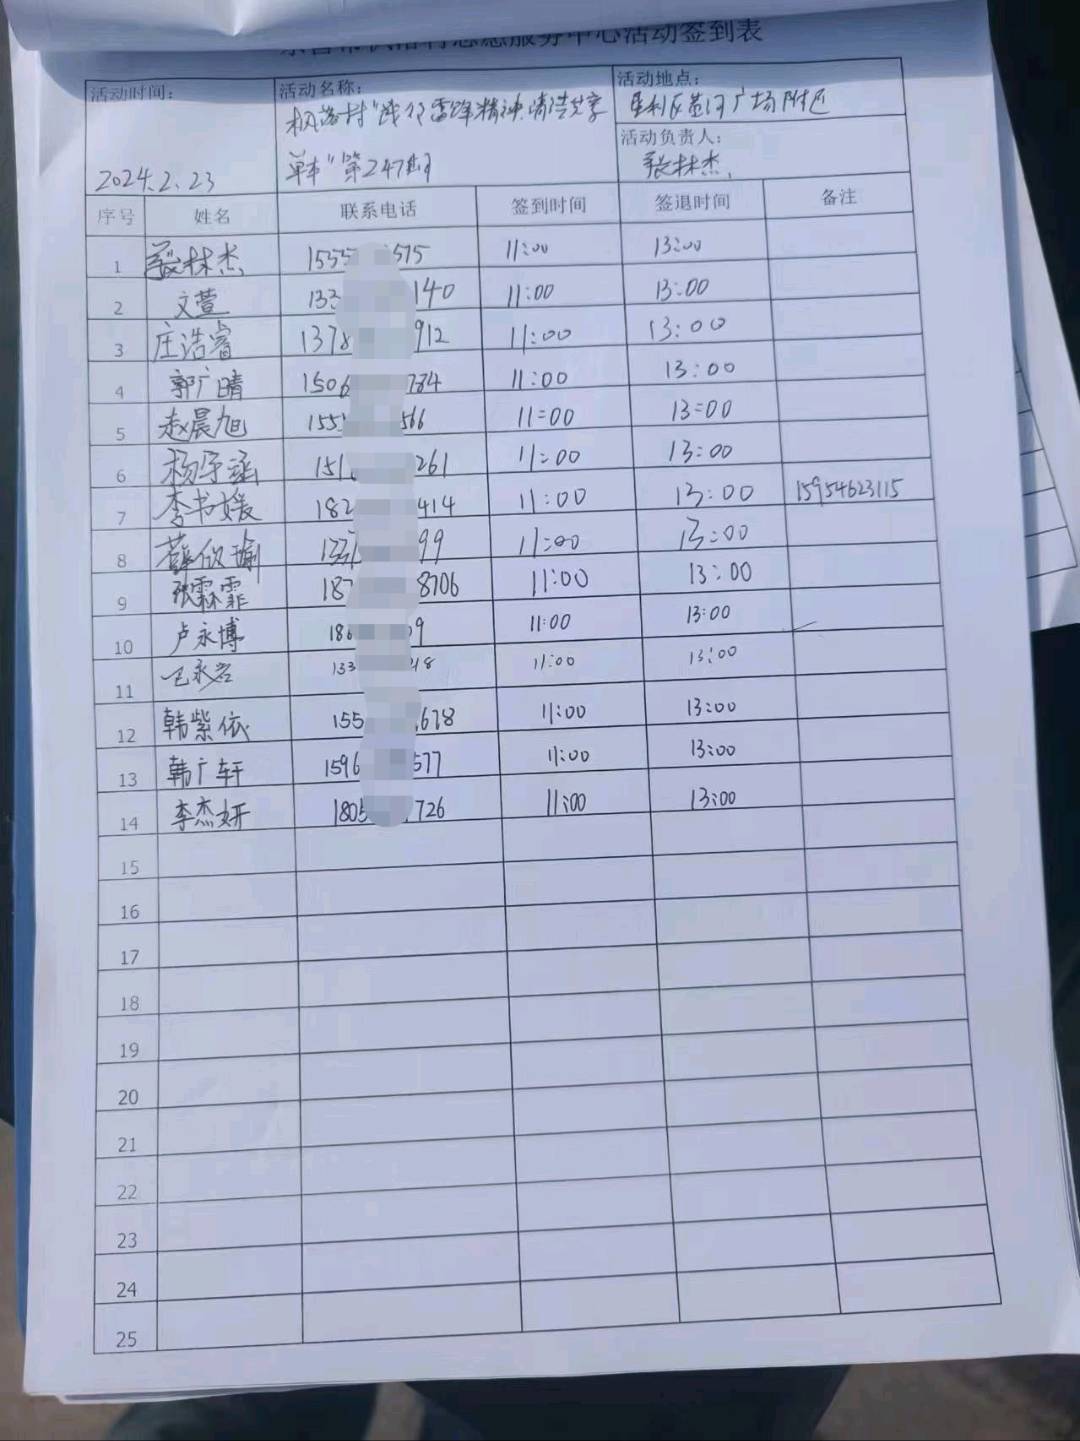 服务中心活动签到表
活动时间：
2024.2.23
活动名称：
枫洛村“践行雷锋精神、清洁共享
单车”第247期
活动地点：
垦利区黄河广场附近
活动负责人：
张林杰
序号 姓名 联系电话 签到时间 签退时间 备注
1 张林杰 1555 575 11:00 13:00
2 文萱 133 140 11:00 13:00
3 庄浩睿 1378 912 11:00 13:00
4 郭广晴 1506 784 11:00 13:00
5 赵晨旭 155 566 11:00 13:00
6 杨宇涵 151 261 11:00 13:00
7 李书媛 182 414 11:00 13:00 15954623115
8 薛欣瑜 133 99 11:00 13:00
9 张霖霏 187 8706 11:00 13:00
10 卢永博 186 09 11:00 13:00
11 133 18 11:00 13:00
12 韩紫依 155 678 11:00 13:00
13 韩广轩 1596 577 11:00 13:00
14 李杰妍 1805 726 11:00 13:00
15
16
17
18
19
20
21
22
23
24
25